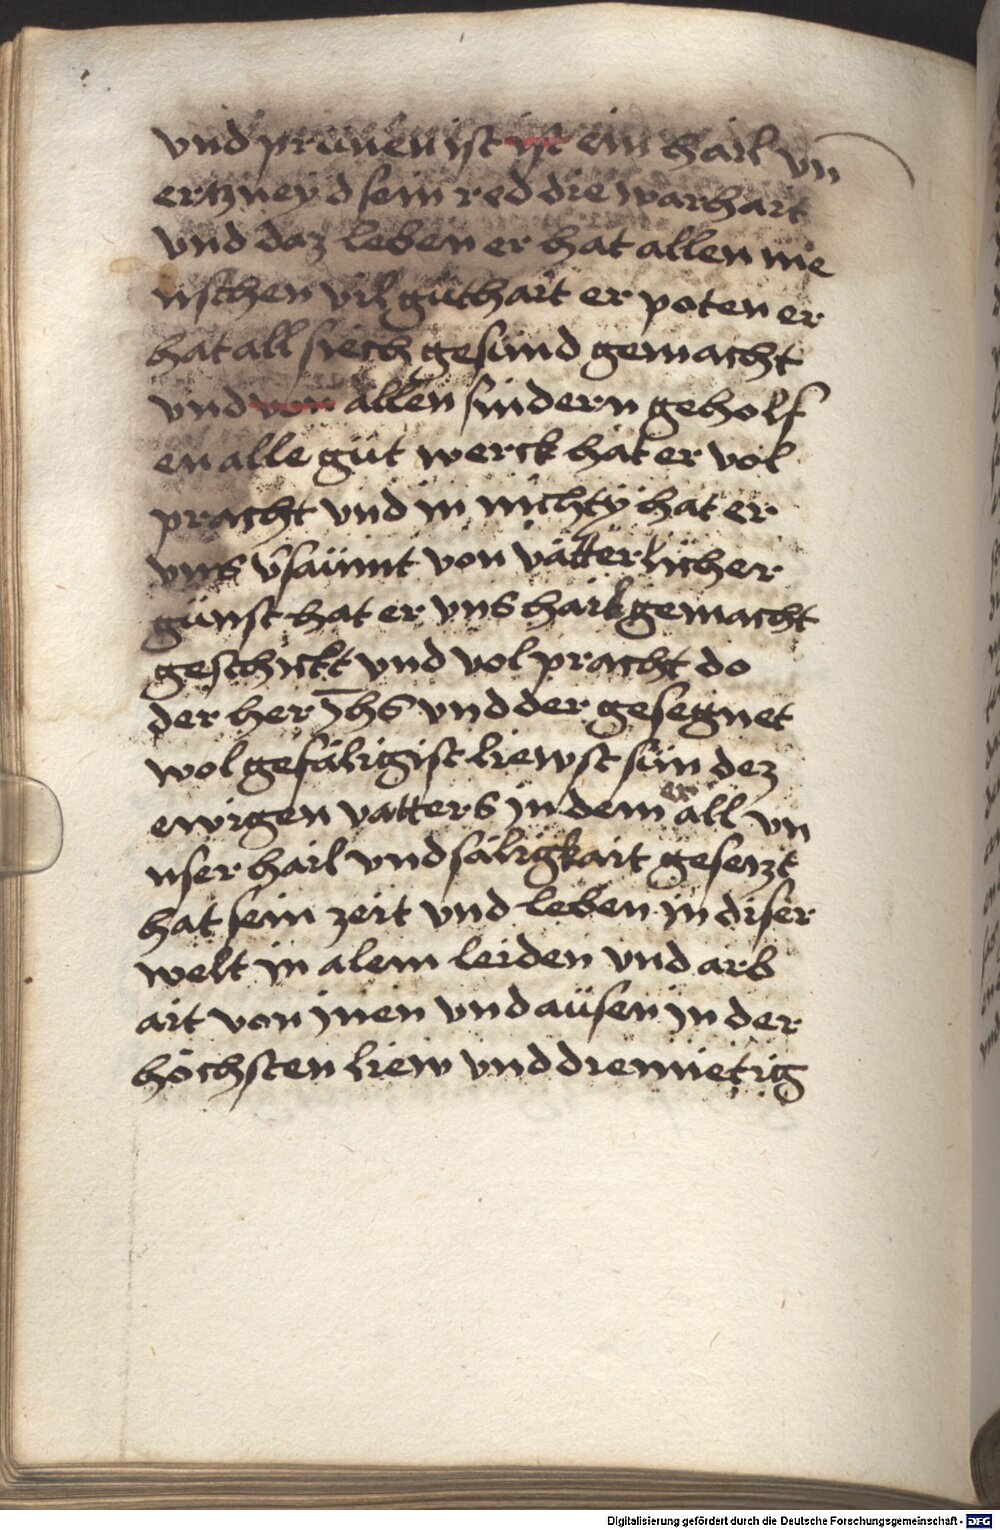 vnd prüuen ist ist ein hail vn
ertzney d sein red die warhait
vnd daz leben er hat allen me
nschen vil guthait er poten er
hat all siech gesund gemacht
vnd von allen sündern geholf
en alle gut werck hat er vol
pracht vnd in nichty hat er
vns v̄saümt von vätterlicher
günst hat er vns hail gemacht
geschickt vnd vol pracht do
der her jh̄s vnd der gesegnet
wol gefäligist liewst sün dez
ewigen vatters jn dem er all vn
nser hail vnd säligkait gesetzt
hat sein zeit vnd leben in diser
welt in alem leiden vnd arb
ait von jnen vnd aüsen jn der
höchsten liew vnd diemietig
Digitalisierung gefördert durch die Deutsche Forschungsgemeinschaft - DFG